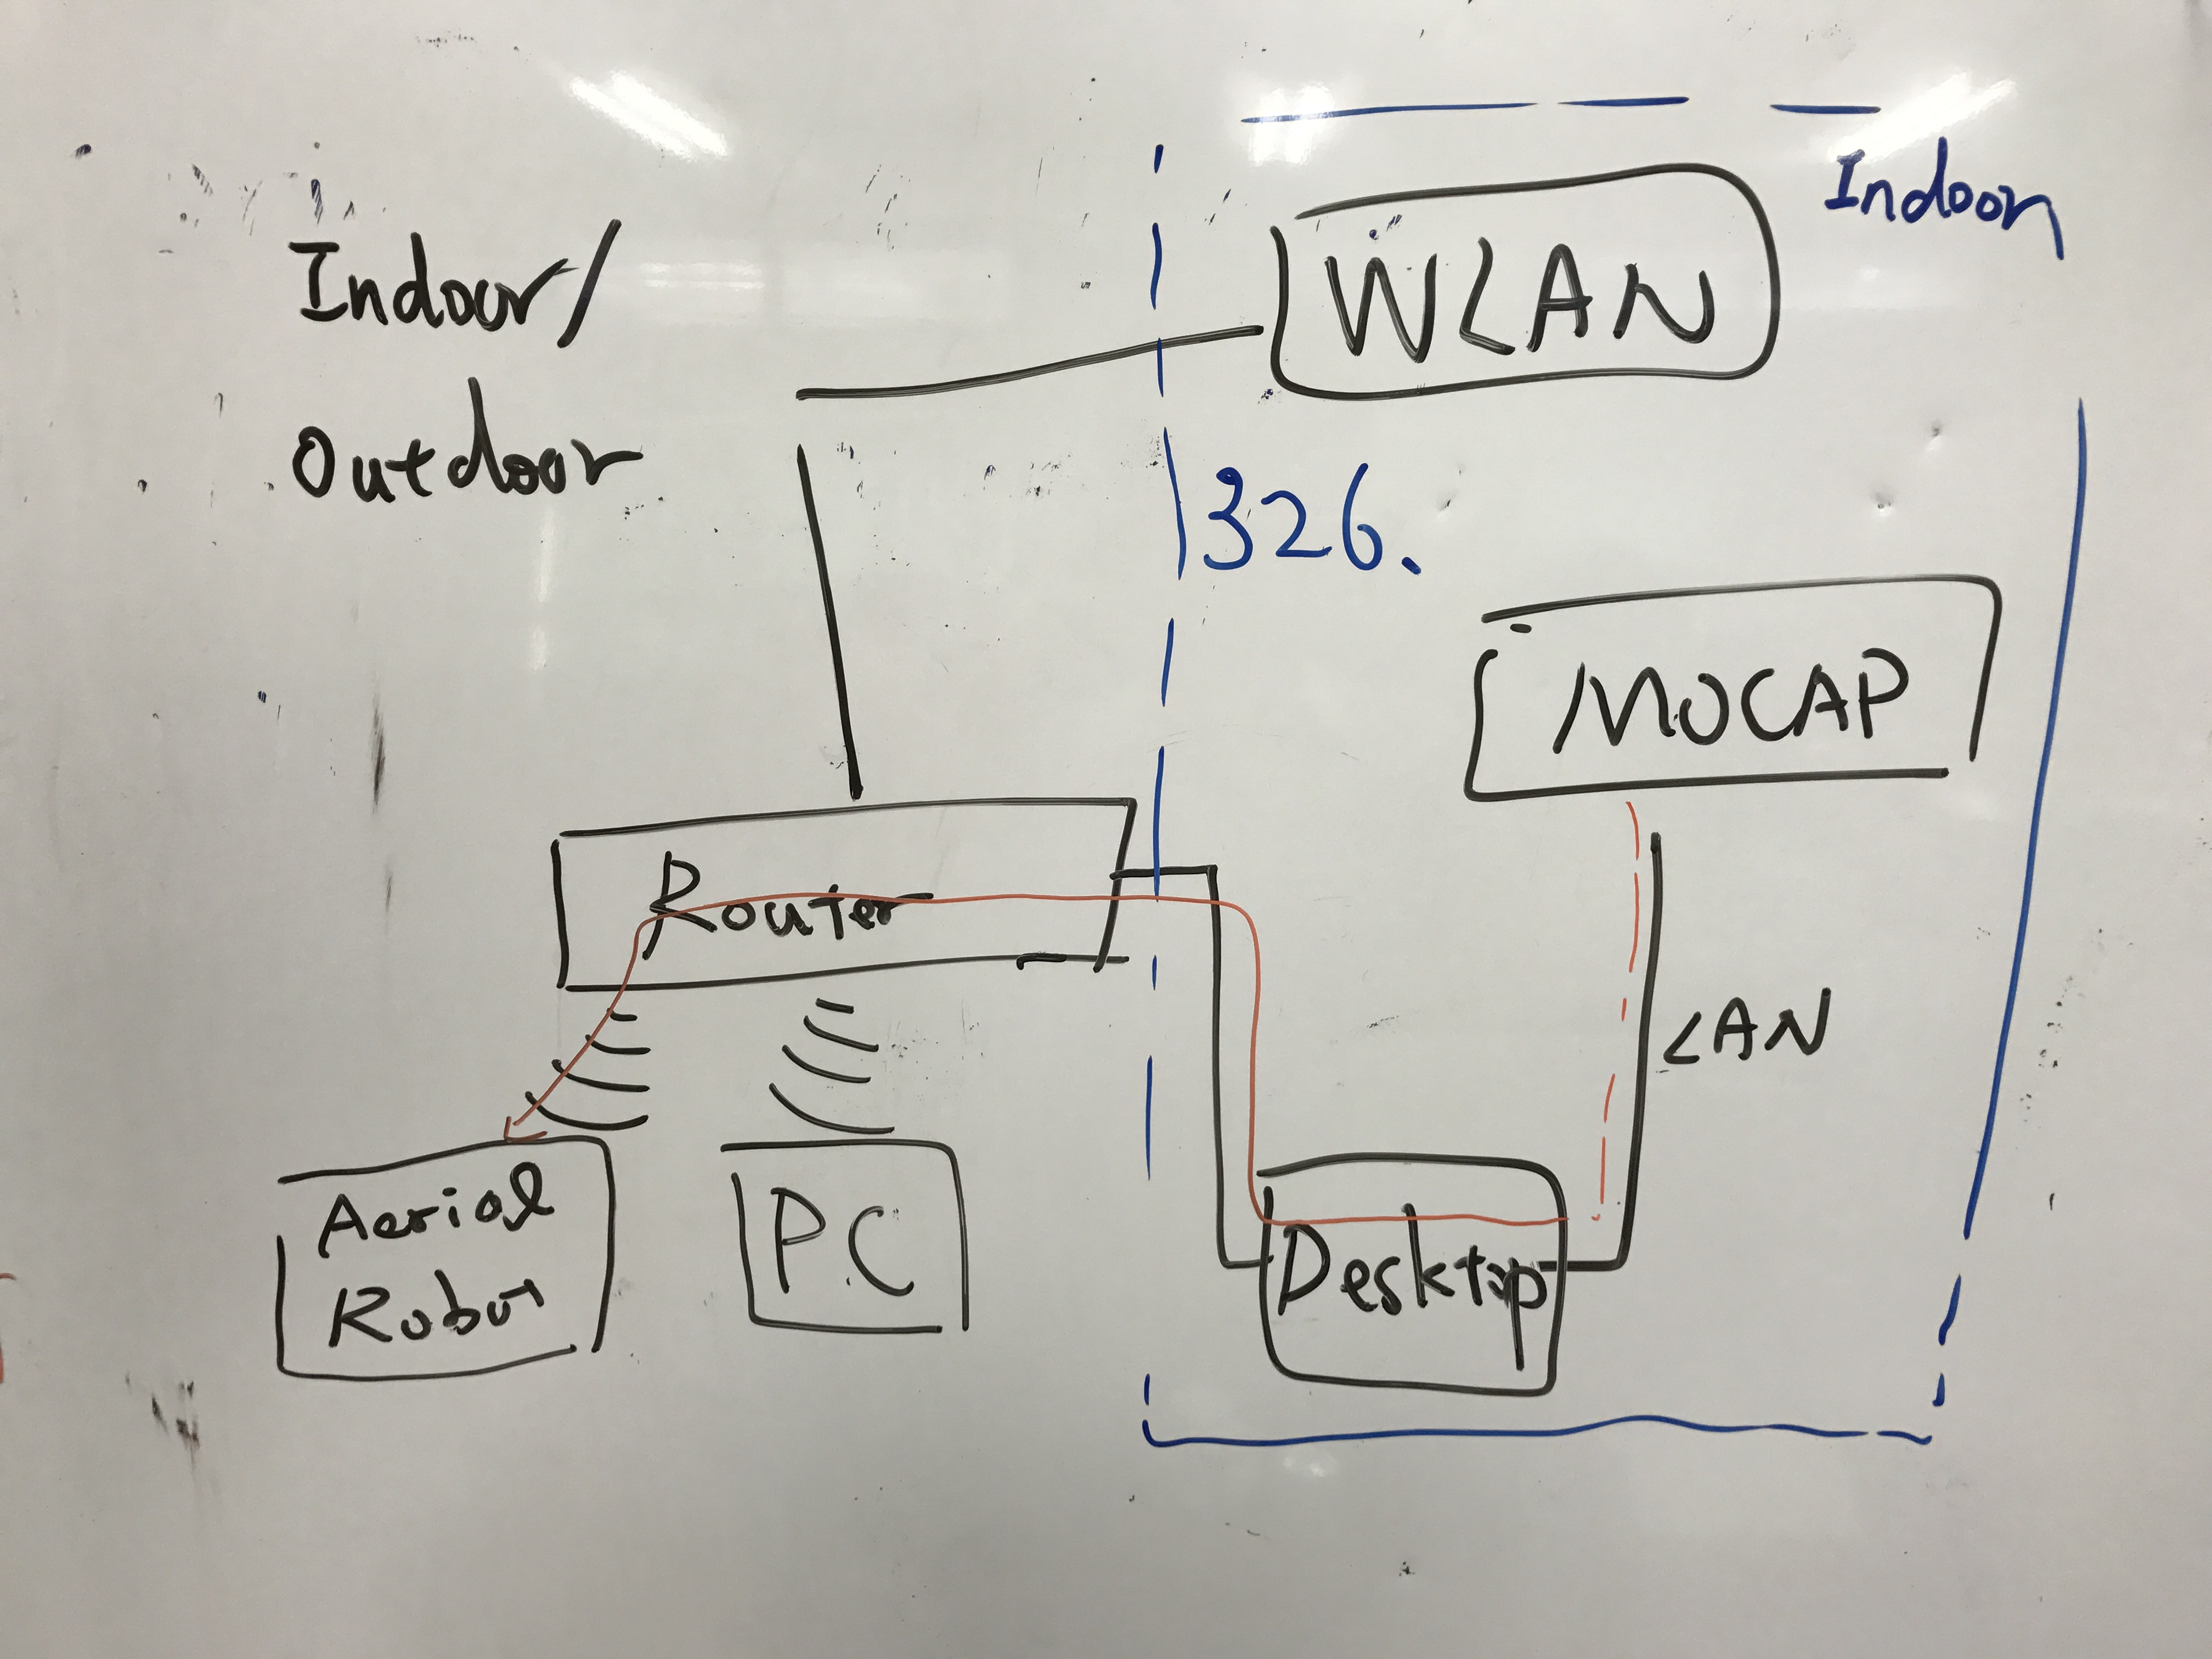 Indoor/
Outdoor
Indoor
WLAN
326.
MOCAP
Router
LAN
Aerial
Robot
PC
Desktop